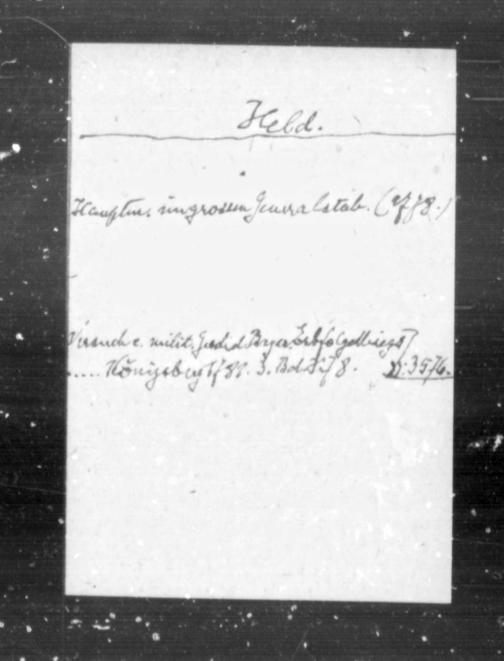 Held.
Hauptm. im grossen Generalstab.
Versuch e. milit. Gesch. d. Bayer. Erbfolgekriegs
..... Königsberg 3. Bd. 8. D: 3576.